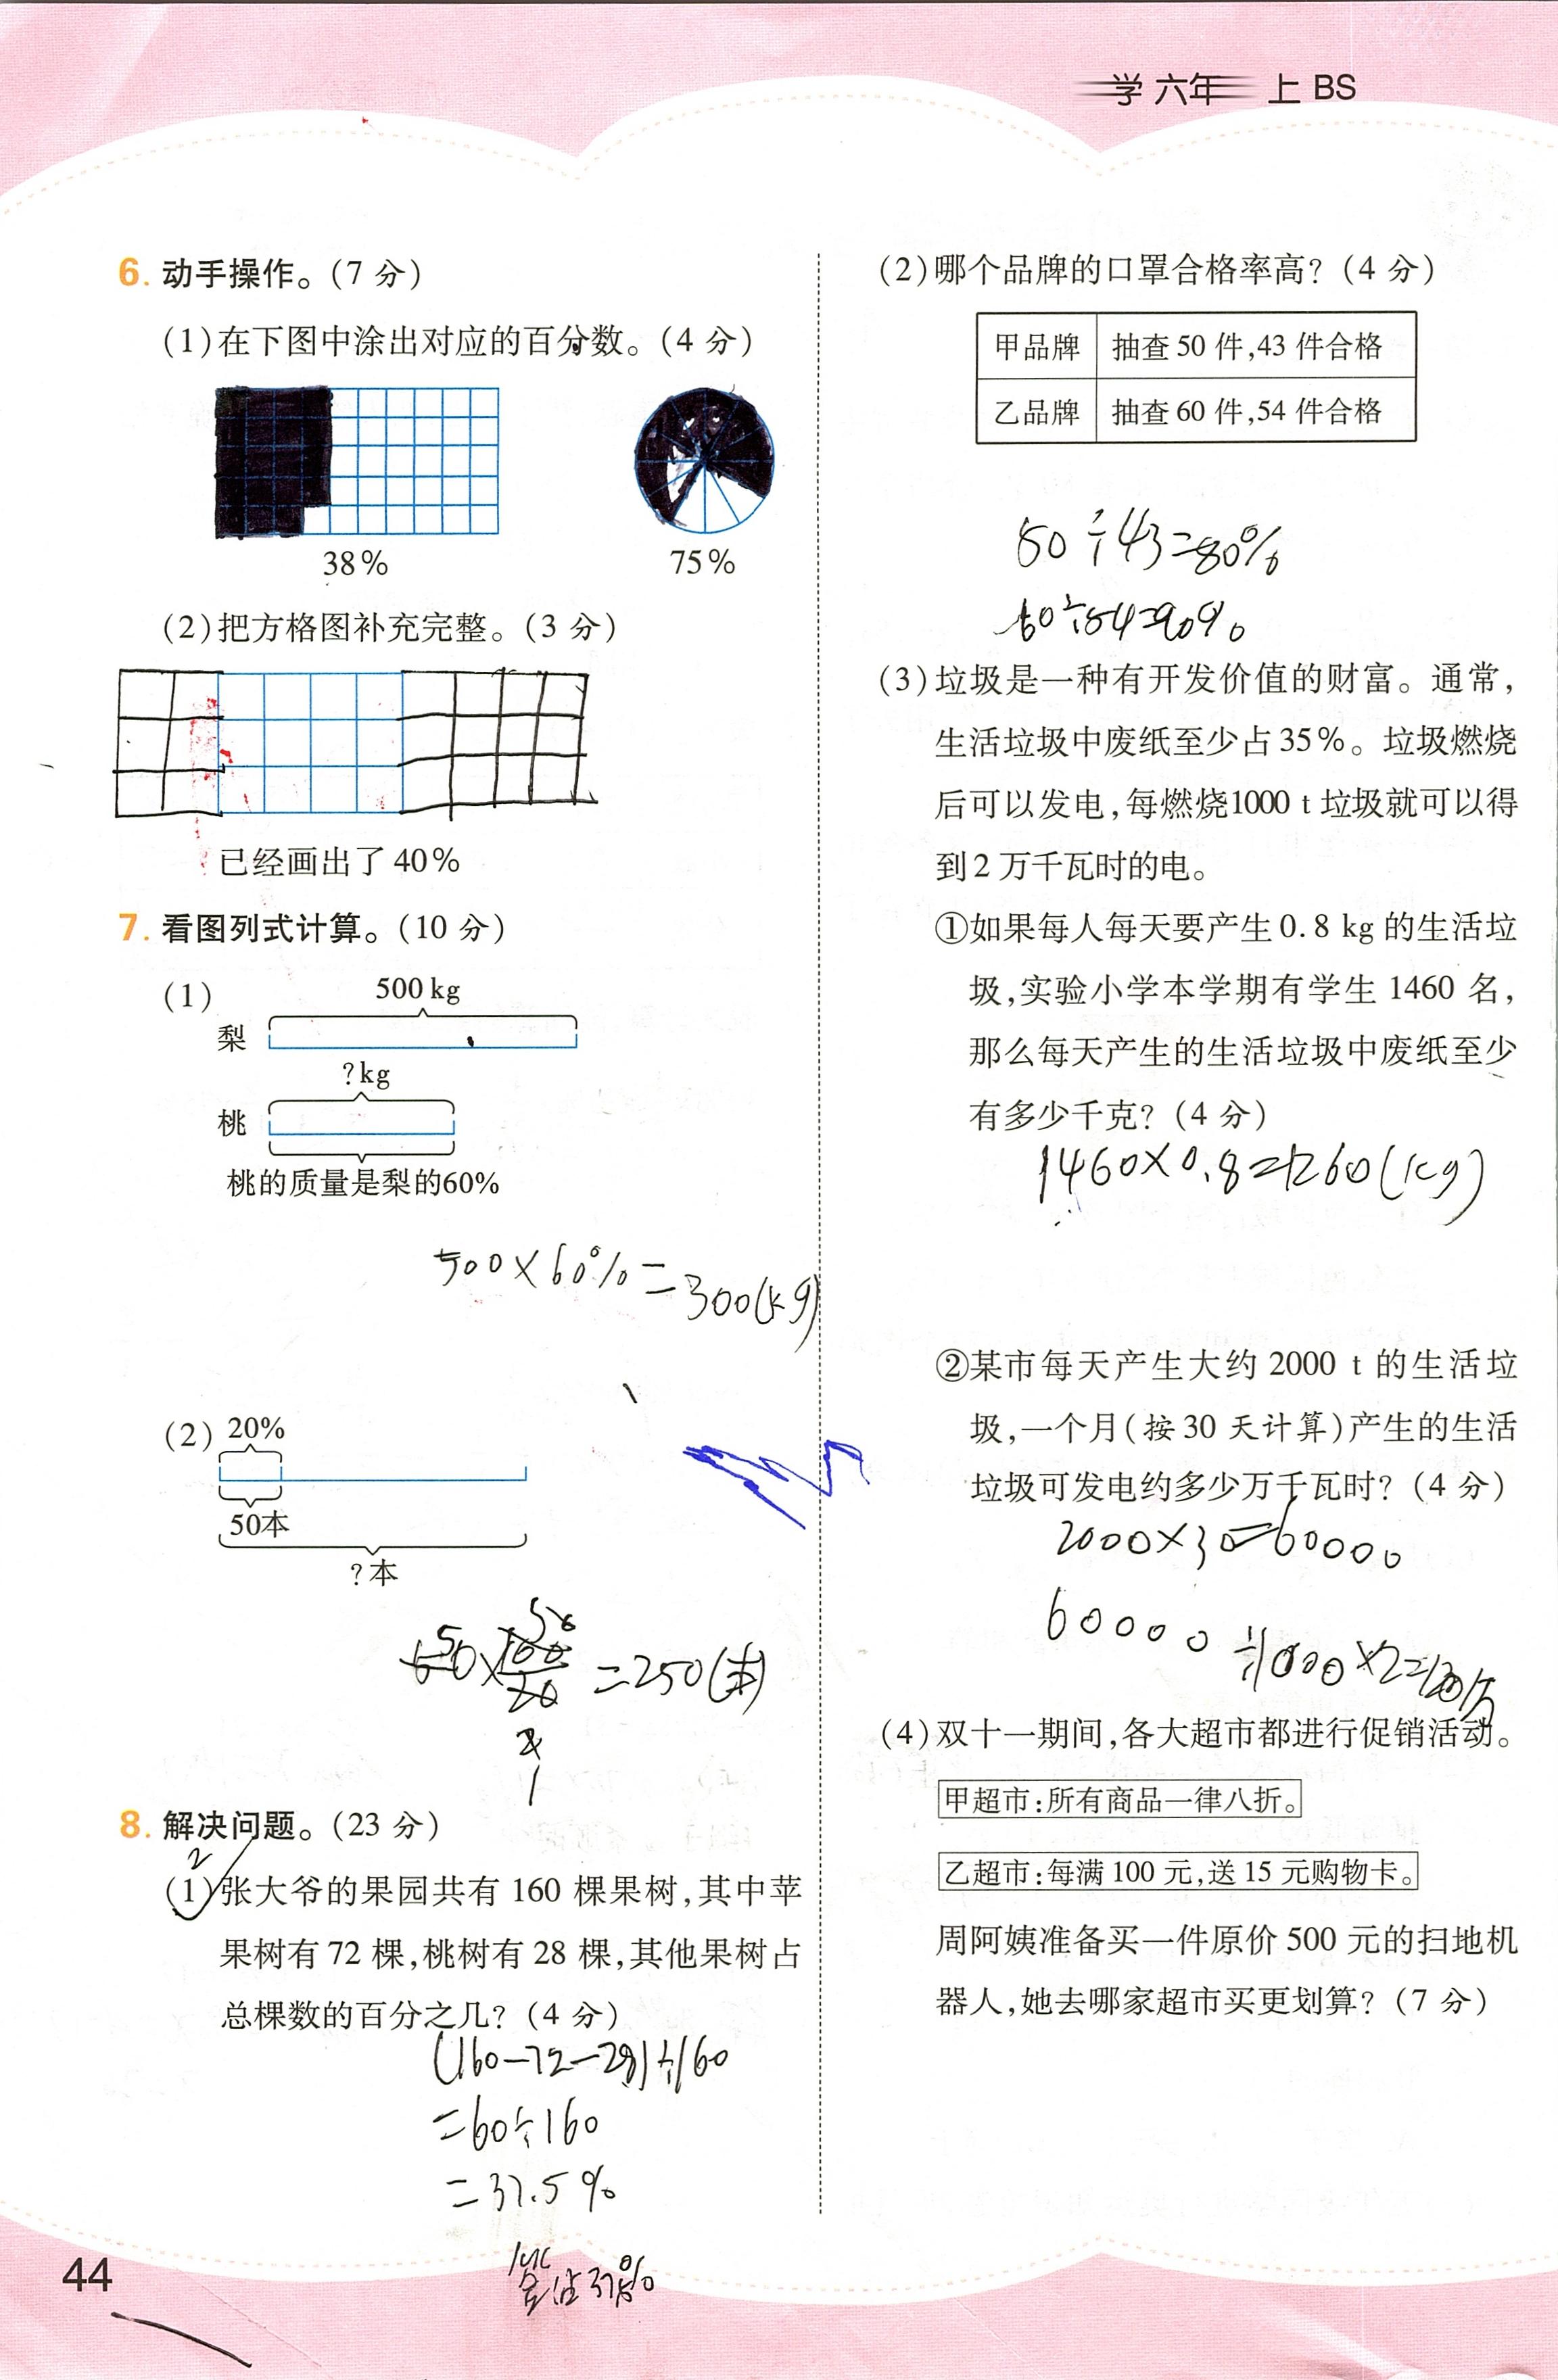 学 六年 上 BS
6. 动手操作。(7 分)
(1)在下图中涂出对应的百分数。(4 分)
38%
75%
(2)把方格图补充完整。(3 分)
已经画出了 40%
7. 看图列式计算。(10 分)
(1)
500 kg
梨
?kg
桃
桃的质量是梨的60%
500×60%=300(kg)
(2)
20%
50本
?本
=250(本)
8. 解决问题。(23 分)
2
(1)张大爷的果园共有 160 棵果树,其中苹
果树有 72 棵,桃树有 28 棵,其他果树占
总棵数的百分之几?(4 分)
(160-72-28)÷160
=60÷160
=37.5%
44
(2)哪个品牌的口罩合格率高?(4 分)
甲品牌 抽查 50 件,43 件合格
乙品牌 抽查 60 件,54 件合格
50÷43=80%
60÷54=90%
(3)垃圾是一种有开发价值的财富。通常,
生活垃圾中废纸至少占35%。垃圾燃烧
后可以发电,每燃烧1000 t 垃圾就可以得
到 2 万千瓦时的电。
①如果每人每天要产生 0.8 kg 的生活垃
圾,实验小学本学期有学生 1460 名,
那么每天产生的生活垃圾中废纸至少
有多少千克?(4 分)
1460×0.8=1260(kg)
②某市每天产生大约 2000 t 的生活垃
圾,一个月(按 30 天计算)产生的生活
垃圾可发电约多少万千瓦时?(4 分)
2000×30=60000
60000÷1000×2=120万
(4)双十一期间,各大超市都进行促销活动。
甲超市:所有商品一律八折。
乙超市:每满 100 元,送 15 元购物卡。
周阿姨准备买一件原价 500 元的扫地机
器人,她去哪家超市买更划算?(7 分)